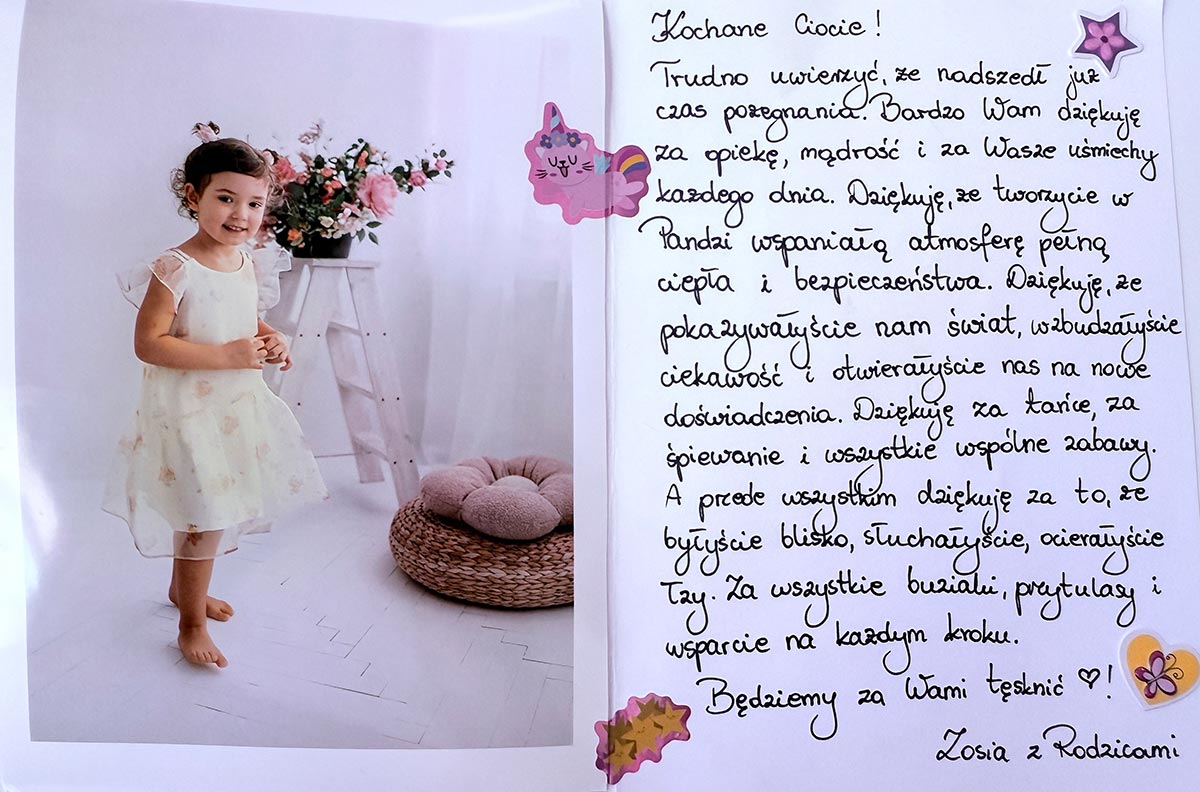 Kochane Ciocie!
Trudno uwierzyć, że nadszedł już
czas pożegnania. Bardzo Wam dziękuję
za opiekę, mądrość i za Wasze uśmiechy
każdego dnia. Dziękuję, że tworzycie w
Pandzi wspaniałą atmosferę pełną
ciepła i bezpieczeństwa. Dziękuję, że
pokazywałyście nam świat, wzbudzałyście
ciekawość i otwierałyście nas na nowe
doświadczenia. Dziękuję za tańce, za
śpiewanie i wszystkie wspólne zabawy.
A przede wszystkim dziękuję za to, że
byłyście blisko, słuchałyście, ocierałyście
łzy. Za wszystkie buziaki, przytulasy i
wsparcie na każdym kroku.
Będziemy za Wami tęsknić ♡!
Zosia z Rodzicami